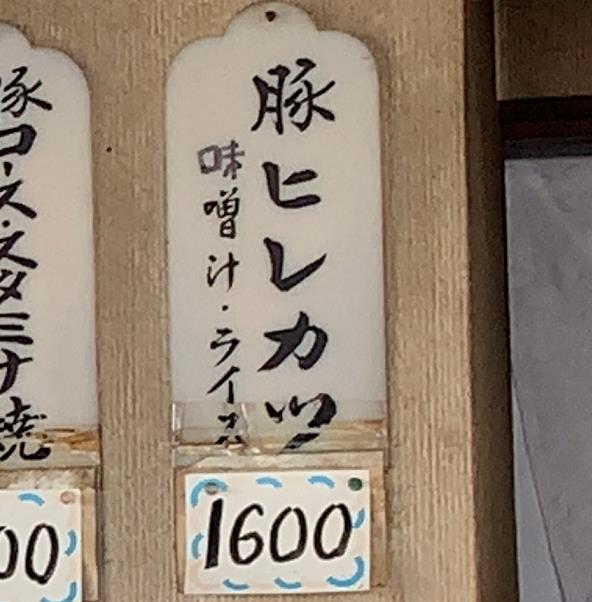 豚ヒレカツ
味噌汁・ライス
1600
豚ロース・スタミナ焼
00